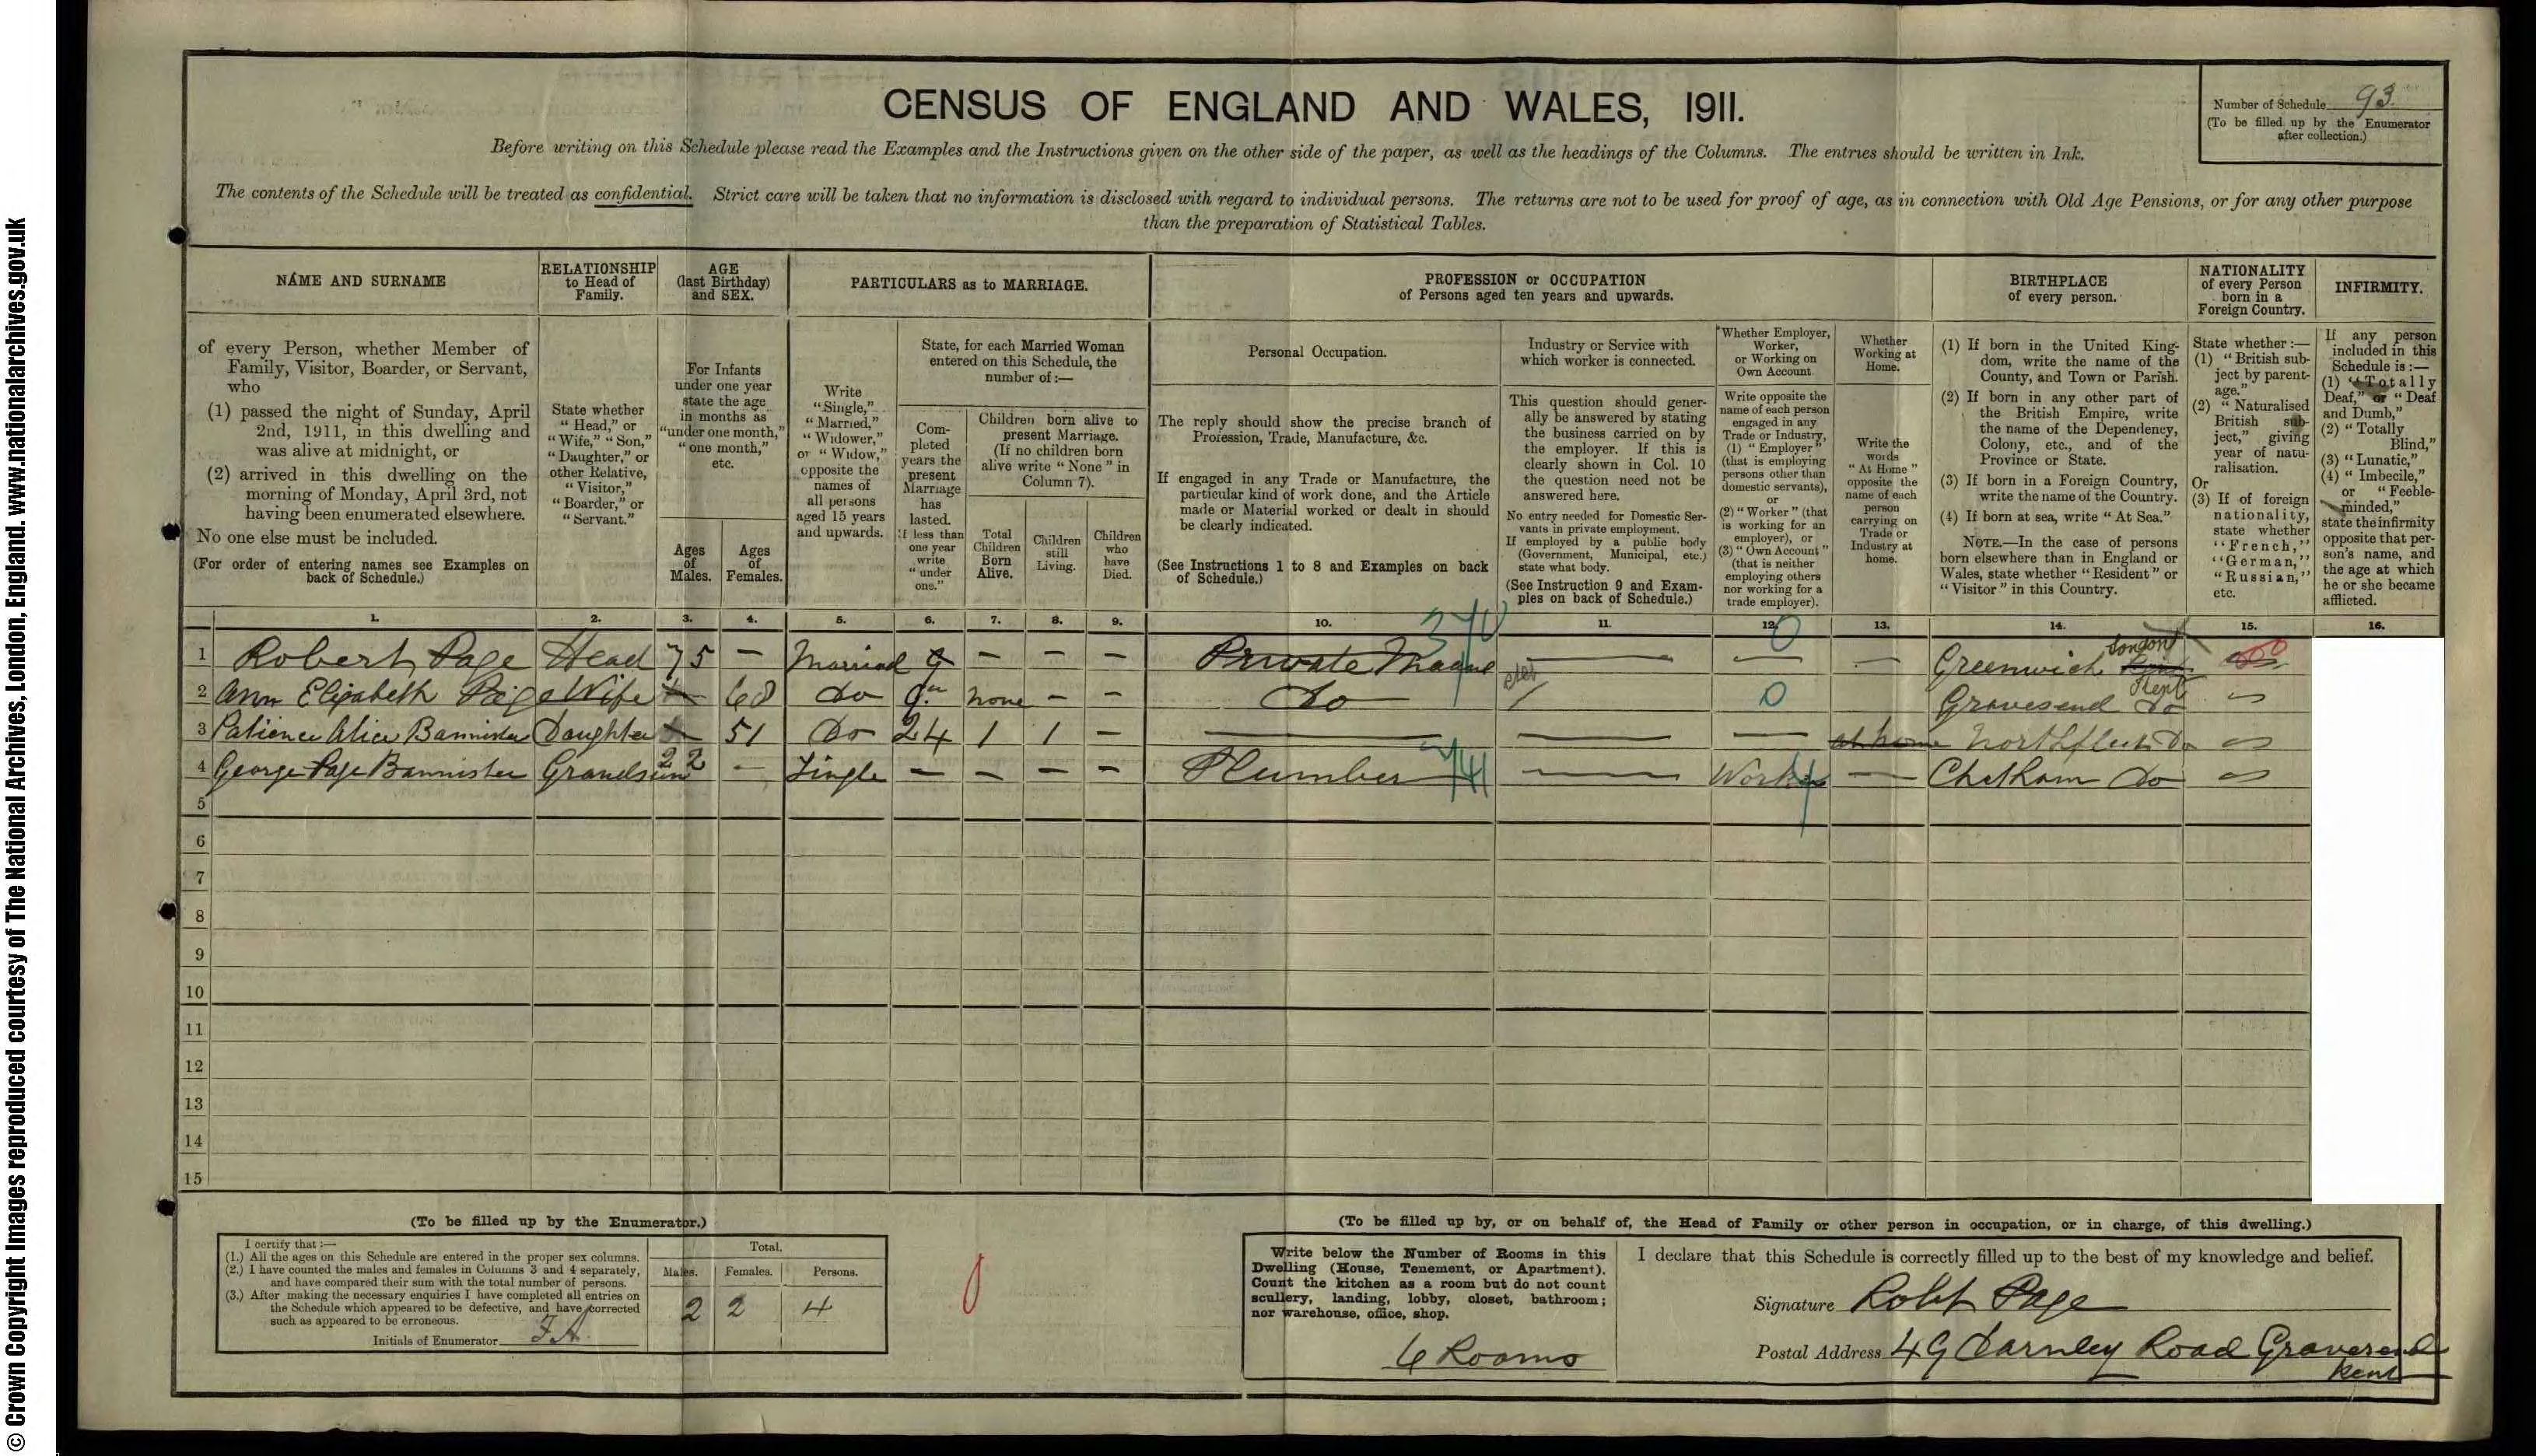 © Crown Copyright Images reproduced courtesy of The National Archives, London, England. www.nationalarchives.gov.uk
CENSUS OF ENGLAND AND WALES, 1911.
Number of Schedule 93.
(To be filled up by the Enumerator
after collection.)
Before writing on this Schedule please read the Examples and the Instructions given on the other side of the paper, as well as the headings of the Columns. The entries should be written in Ink.
The contents of the Schedule will be treated as confidential. Strict care will be taken that no information is disclosed with regard to individual persons. The returns are not to be used for proof of age, as in connection with Old Age Pensions, or for any other purpose
than the preparation of Statistical Tables.
NAME AND SURNAME
of every Person, whether Member of
Family, Visitor, Boarder, or Servant,
who
(1) passed the night of Sunday, April
2nd, 1911, in this dwelling and
was alive at midnight, or
(2) arrived in this dwelling on the
morning of Monday, April 3rd, not
having been enumerated elsewhere.
No one else must be included.
(For order of entering names see Examples on
back of Schedule.)
RELATIONSHIP
to Head of
Family.
State whether
"Head," or
"Wife," "Son,"
"Daughter," or
other Relative,
"Visitor,"
"Boarder," or
"Servant."
AGE
(last Birthday)
and SEX.
For Infants
under one year
state the age
in months as
"under one month,"
"one month,"
etc.
Ages
of
Males.
Ages
of
Females.
PARTICULARS as to MARRIAGE.
Write
"Single,"
"Married,"
"Widower,"
or "Widow,"
opposite the
names of
all persons
aged 15 years
and upwards.
State, for each Married Woman
entered on this Schedule, the
number of:—
Com-
pleted
years the
present
Marriage
has
lasted.
If less than
one year
write
"under
one."
Children born alive to
present Marriage.
(If no children born
alive write "None" in
Column 7).
Total
Children
Born
Alive.
Children
still
Living.
Children
who
have
Died.
PROFESSION or OCCUPATION
of Persons aged ten years and upwards.
Personal Occupation.
The reply should show the precise branch of
Profession, Trade, Manufacture, &c.
If engaged in any Trade or Manufacture, the
particular kind of work done, and the Article
made or Material worked or dealt in should
be clearly indicated.
(See Instructions 1 to 8 and Examples on back
of Schedule.)
Industry or Service with
which worker is connected.
This question should gener-
ally be answered by stating
the business carried on by
the employer. If this is
clearly shown in Col. 10
the question need not be
answered here.
No entry needed for Domestic Ser-
vants in private employment.
If employed by a public body
(Government, Municipal, etc.)
state what body.
(See Instruction 9 and Exam-
ples on back of Schedule.)
Whether Employer,
Worker,
or Working on
Own Account.
Write opposite the
name of each person
engaged in any
Trade or Industry,
(1) "Employer"
(that is employing
persons other than
domestic servants),
or
(2) "Worker" (that
is working for an
employer), or
(3) "Own Account"
(that is neither
employing others
nor working for a
trade employer).
Whether
Working at
Home.
Write the
words
"At Home"
opposite the
name of each
person
carrying on
Trade or
Industry at
home.
BIRTHPLACE
of every person.
(1) If born in the United King-
dom, write the name of the
County, and Town or Parish.
(2) If born in any other part of
the British Empire, write
the name of the Dependency,
Colony, etc., and of the
Province or State.
(3) If born in a Foreign Country,
write the name of the Country.
(4) If born at sea, write "At Sea."
NOTE.—In the case of persons
born elsewhere than in England or
Wales, state whether "Resident" or
"Visitor" in this Country.
NATIONALITY
of every Person
born in a
Foreign Country.
State whether:—
(1) "British sub-
ject by parent-
age."
(2) "Naturalised
British sub-
ject," giving
year of natu-
ralisation.
Or
(3) If of foreign
nationality,
state whether
"French,"
"German,"
"Russian,"
etc.
INFIRMITY.
If any person
included in this
Schedule is:—
(1) "Totally
Deaf," or "Deaf
and Dumb,"
(2) "Totally
Blind,"
(3) "Lunatic,"
(4) "Imbecile,"
or "Feeble-
minded,"
state the infirmity
opposite that per-
son's name, and
the age at which
he or she became
afflicted.
1. 2. 3. 4. 5. 6. 7. 8. 9. 10. 11. 12. 13. 14. 15. 16.
1 Robert Page Head 75 — Married 9 — — — Private Means — — — Greenwich London
2 Ann Elizabeth Page Wife 68 do 9 none — — do Gravesend Kent do
3 Patience Alice Bannister Daughter 51 Do 24 1 1 — — — — at home Northfleet Do
4 George Page Bannister Grandson 22 — Single — — — — Plumber — Worker — Chatham Do
5
6
7
8
9
10
11
12
13
14
15
(To be filled up by the Enumerator.)
I certify that:—
(1.) All the ages on this Schedule are entered in the proper sex columns.
(2.) I have counted the males and females in Columns 3 and 4 separately,
and have compared their sum with the total number of persons.
(3.) After making the necessary enquiries I have completed all entries on
the Schedule which appeared to be defective, and have corrected
such as appeared to be erroneous.
Initials of Enumerator
Total.
Males. Females. Persons.
2 2 4
(To be filled up by, or on behalf of, the Head of Family or other person in occupation, or in charge, of this dwelling.)
Write below the Number of Rooms in this
Dwelling (House, Tenement, or Apartment).
Count the kitchen as a room but do not count
scullery, landing, lobby, closet, bathroom;
nor warehouse, office, shop.
6 Rooms
I declare that this Schedule is correctly filled up to the best of my knowledge and belief.
Signature Robt Page
Postal Address 49 Darnley Road Gravesend
Kent